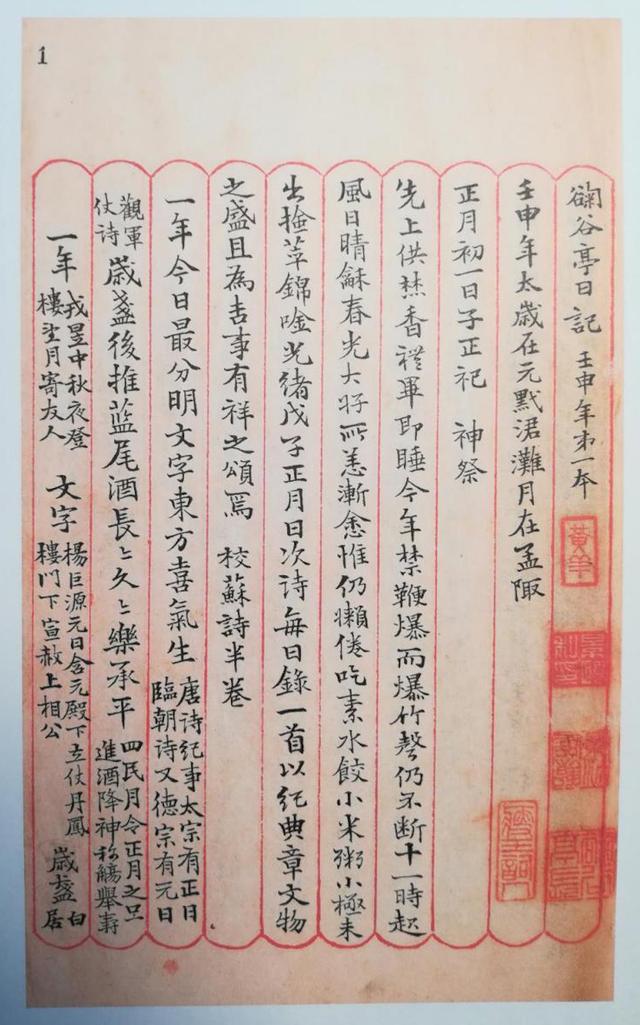 1
鞠谷亭日記 壬申年第一本
壬申年太歲在元默涒灘月在孟陬
正月初一日子正祀 神祭
先上供焚香禮畢即睡今年禁鞭爆而爆竹聲仍不斷十一時起
風日晴龢春光大好所恙漸愈惟仍懶倦吃素水餃小米粥小極未
出撿莘錦唫光緒戊子正月日次詩每日錄一首以紀典章文物
之盛且為吉事有祥之頌焉 校蘇詩半卷
一年今日最分明文字東方喜氣生 唐詩紀事太宗有正日
臨朝詩又德宗有元日
觀軍
仗詩 歲盞後推藍尾酒長〻久〻樂承平 四民月令正月之旦
進酒降神称觴舉壽
一年 戎昱中秋夜登
樓望月寄友人 文字 楊巨源元日含元殿下立仗丹鳳
樓門下宣赦上相公 歲盞 白
居
黃羊